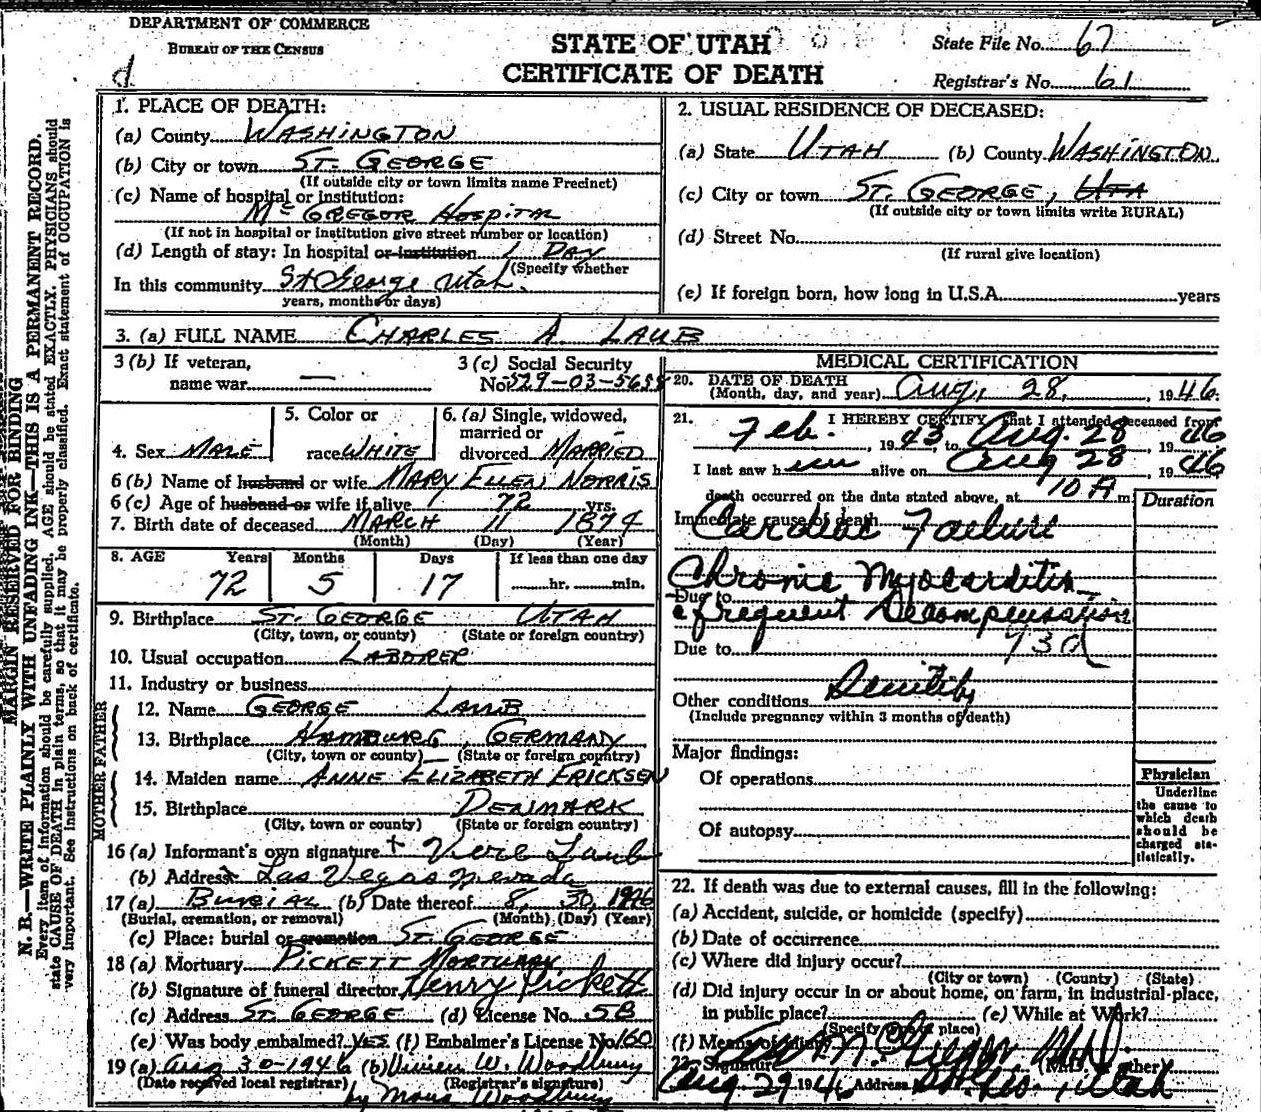 DEPARTMENT OF COMMERCE
BUREAU OF THE CENSUS
STATE OF UTAH
CERTIFICATE OF DEATH
State File No. 67
Registrar's No. 61
MARGIN RESERVED FOR BINDING
N. B.—WRITE PLAINLY WITH UNFADING INK—THIS IS A PERMANENT RECORD.
Every item of information should be carefully supplied. AGE should be stated EXACTLY. PHYSICIANS should
state CAUSE OF DEATH in plain terms, so that it may be properly classified. Exact statement of OCCUPATION is
very important. See instructions on back of certificate.
1. PLACE OF DEATH:
(a) County WASHINGTON
(b) City or town ST. GEORGE
(If outside city or town limits name Precinct)
(c) Name of hospital or institution:
Mc GREGOR HOSPITAL
(If not in hospital or institution give street number or location)
(d) Length of stay: In hospital or institution 1 DAY
(Specify whether
In this community St George Utah.
years, months or days)
2. USUAL RESIDENCE OF DECEASED:
(a) State UTAH (b) County WASHINGTON
(c) City or town ST. GEORGE, UTA
(If outside city or town limits write RURAL)
(d) Street No.
(If rural give location)
(e) If foreign born, how long in U.S.A. years
3. (a) FULL NAME CHARLES A. LAUB
3 (b) If veteran,
name war —
3 (c) Social Security
No. 529-03-5698
4. Sex MALE
5. Color or
race WHITE
6. (a) Single, widowed,
married or
divorced MARRIED
6 (b) Name of husband or wife MARY ELLEN NORRIS
6 (c) Age of husband or wife if alive 72 yrs.
7. Birth date of deceased MARCH 11 1874
(Month) (Day) (Year)
8. AGE Years Months Days If less than one day
72 5 17 hr. min.
9. Birthplace ST. GEORGE UTAH
(City, town, or county) (State or foreign country)
10. Usual occupation LABORER
11. Industry or business
FATHER
12. Name GEORGE LAUB
13. Birthplace HAMBURG, GERMANY
(City, town or county) (State or foreign country)
MOTHER
14. Maiden name ANNE ELIZABETH ERICKSEN
15. Birthplace DENMARK
(City, town or county) (State or foreign country)
16 (a) Informant's own signature + Vere Laub
(b) Address x Las Vegas Nevada
17 (a) BURIAL (b) Date thereof 8, 30, 1946
(Burial, cremation, or removal) (Month) (Day) (Year)
(c) Place: burial or cremation ST. GEORGE
18 (a) Mortuary PICKETT MORTUARY
(b) Signature of funeral director Henry Pickett
(c) Address ST. GEORGE (d) License No. 5B
(e) Was body embalmed? YES (f) Embalmer's License No. 160
19 (a) Aug 30-1946 (b) Vivien W. Woodbury
(Date received local registrar) (Registrar's signature)
by Woodbury
MEDICAL CERTIFICATION
20. DATE OF DEATH
(Month, day, and year) Aug, 28, 1946.
21. I HEREBY CERTIFY that I attended deceased from
Feb. 1943, to Aug. 28 1946
I last saw him alive on Aug 28, 1946
death occurred on the date stated above, at 10 A m.
Duration
Immediate cause of death
Cardiac Failure
Chronic Myocarditis
Due to
c frequent Decompensation
Due to 93d
Other conditions Senility
(Include pregnancy within 3 months of death)
Major findings:
Of operations
Of autopsy
Physician
Underline
the cause to
which death
should be
charged sta-
tistically.
22. If death was due to external causes, fill in the following:
(a) Accident, suicide, or homicide (specify)
(b) Date of occurrence
(c) Where did injury occur?
(City or town) (County) (State)
(d) Did injury occur in or about home, on farm, in industrial place,
in public place? (e) While at Work?
(Specify type of place)
(f) Means of injury
23. Signature McGregor MD (M.D. or other)
Aug 29 1946 Address St. Geo., Utah